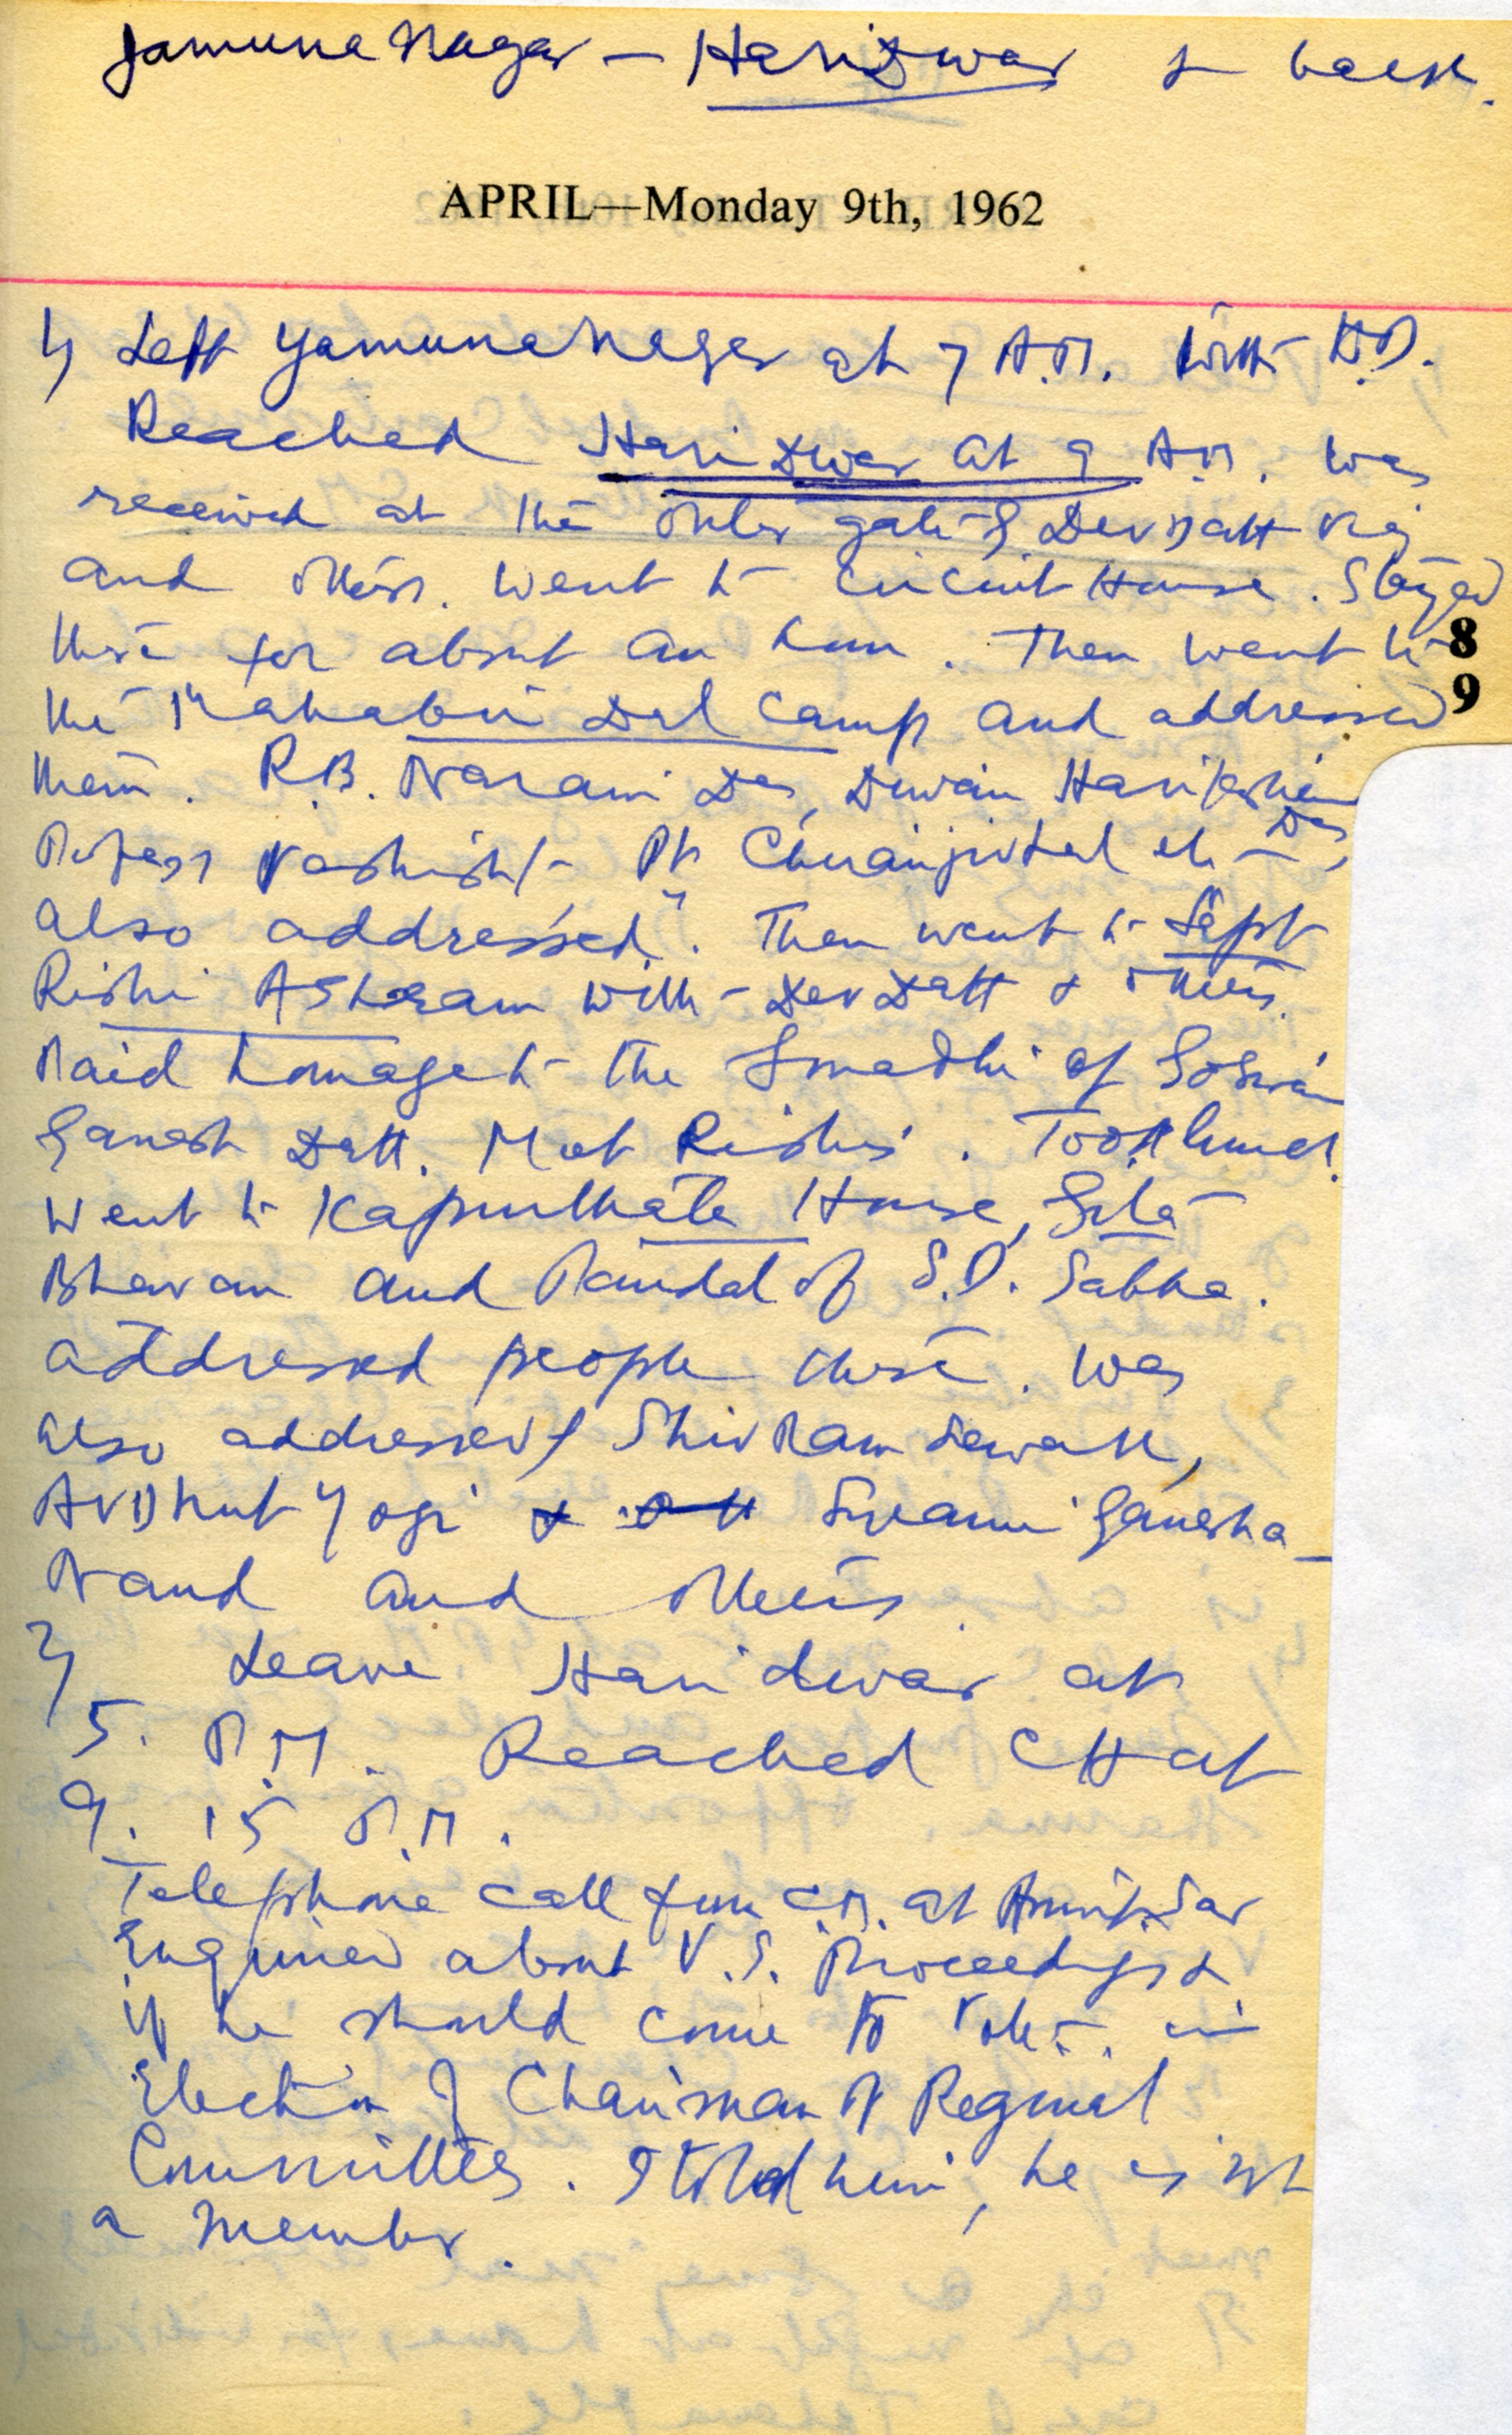 Jamuna Nagar — Haridwar & back.
APRIL—Monday 9th, 1962
1) Left Yamuna Nagar at 7 A.M. with
Reached Haridwar at 9 A.M. was
received at the outer gate by Dev Datt
and others. Went to Circuit House. Stayed
8
there for about an hour. Then went to
9
the Mahabir Dal Camp and addressed
them. R.B. Narain Das, Dewan Harikrishan
Das,
Vashisht Pt Churanjivlal etc
also addressed. Then went to Sapt
Rishi Ashram with Dev Datt & others.
Paid homage to the Smadhi of Goswami
Ganesh Datt. Met Rishis. Took lunch.
Went to Kapurthala House, Gita
Bhavan and Pandal of S.D. Sabha.
addressed people there. was
also addressed by Shiv Ram Sewak,
Avdhut Yogi & Swami Ganesha
Nand and others.
2) Leave Haridwar at
5. P.M. Reached CH at
9. 15 P.M.
Telephone call from C.M. at Amritsar
Enquired about V.S. Proceedings &
if he should come to vote in
Election of Chairman of Regional
Committee. I told him, he is not
a member.